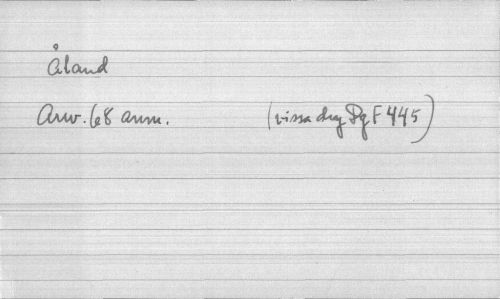 Åland
Anv. 68 anm. (vissa Pg F 445)